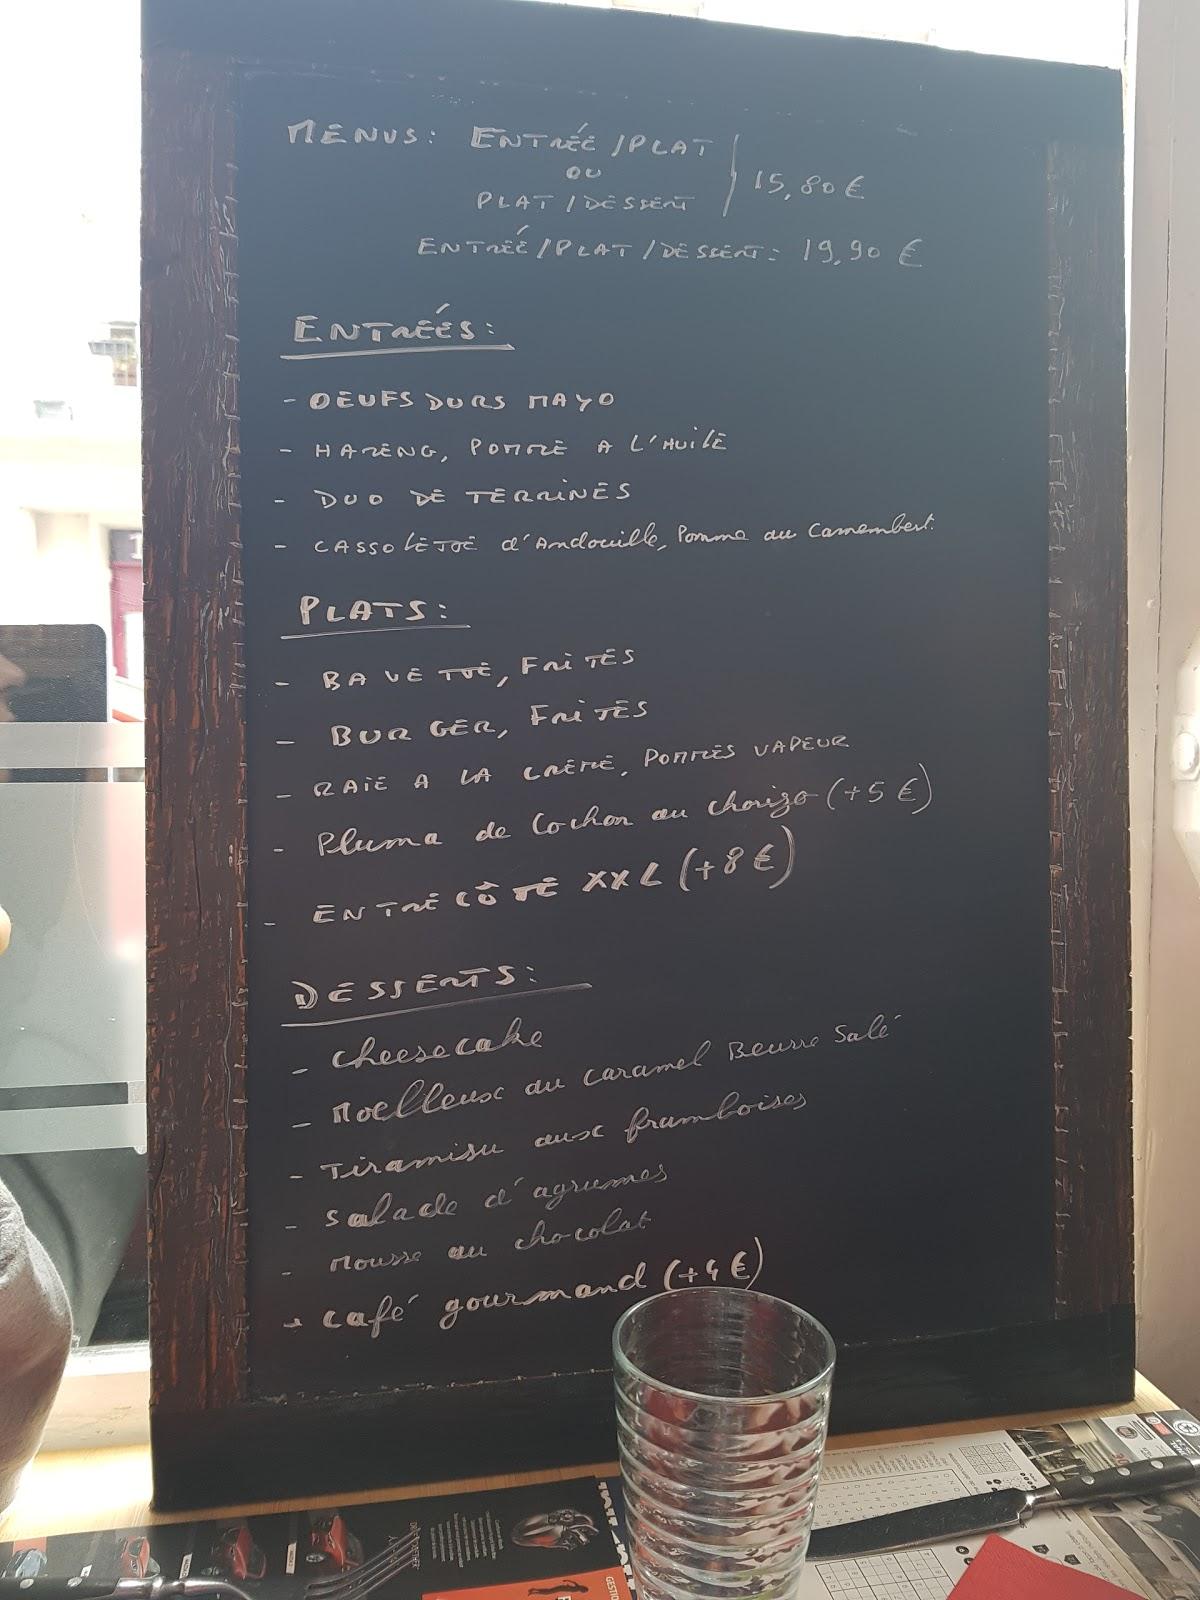 MENUS: ENTRÉE/PLAT
OU
PLAT/DESSERT
15,80 €
ENTRÉE/PLAT/DESSERT: 19,90 €
ENTRÉES:
- OEUFS DURS MAYO
- HARENG, POMME A L'HUILE
- DUO DE TERRINES
- CASSOLETTE d'Andouille, Pomme au Camembert.
PLATS:
- BAVETTE, FRITES
- BURGER, FRITES
- RAIE A LA CREME, POMMES VAPEUR
- Pluma de Cochon au chorizo (+5 €)
- ENTRECÔTE XXL (+8 €)
DESSERTS:
- Cheesecake
- Moelleux au caramel Beurre Salé
- Tiramisu aux framboises
- Salade d'agrumes
- Mousse au chocolat
- Café gourmand (+4 €)